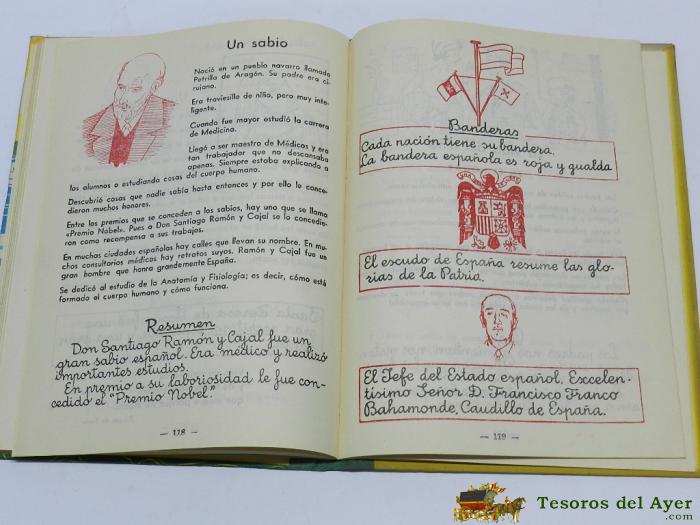 Un sabio
Nació en un pueblo navarro llamado
Petrilla de Aragón. Su padre era ci-
rujano.
Era traviesillo de niño, pero muy inte-
ligente.
Cuando fue mayor estudió la carrera
de Medicina.
Llegó a ser maestro de Médicos y era
tan trabajador que no descansaba
apenas. Siempre estaba explicando a
los alumnos o estudiando cosas del cuerpo humano.
Descubrió cosas que nadie sabía hasta entonces y por ello le conce-
dieron muchos honores.
Entre los premios que se conceden a los sabios, hay uno que se llama
«Premio Nobel». Pues a Don Santiago Ramón y Cajal se lo concedie-
ron como recompensa a sus trabajos.
En muchas ciudades españolas hay calles que llevan su nombre. En mu-
chos consultorios médicos hay retratos suyos. Ramón y Cajal fue un
gran hombre que honra grandemente España.
Se dedicó al estudio de la Anatomía y Fisiología; es decir, cómo está
formado el cuerpo humano y cómo funciona.
Resumen
Don Santiago Ramón y Cajal fue un
gran sabio español. Era médico y realizó
importantes estudios.
En premio a su laboriosidad le fue con-
cedido el "Premio Nobel".
— 118 —
Banderas
Cada nación tiene su bandera.
La bandera española es roja y gualda
El escudo de España resume las glo-
rias de la Patria.
El Jefe del Estado español, Excelen-
tísimo Señor D. Francisco Franco
Bahamonde, Caudillo de España.
— 119 —
Tesoros del Ayer
.com